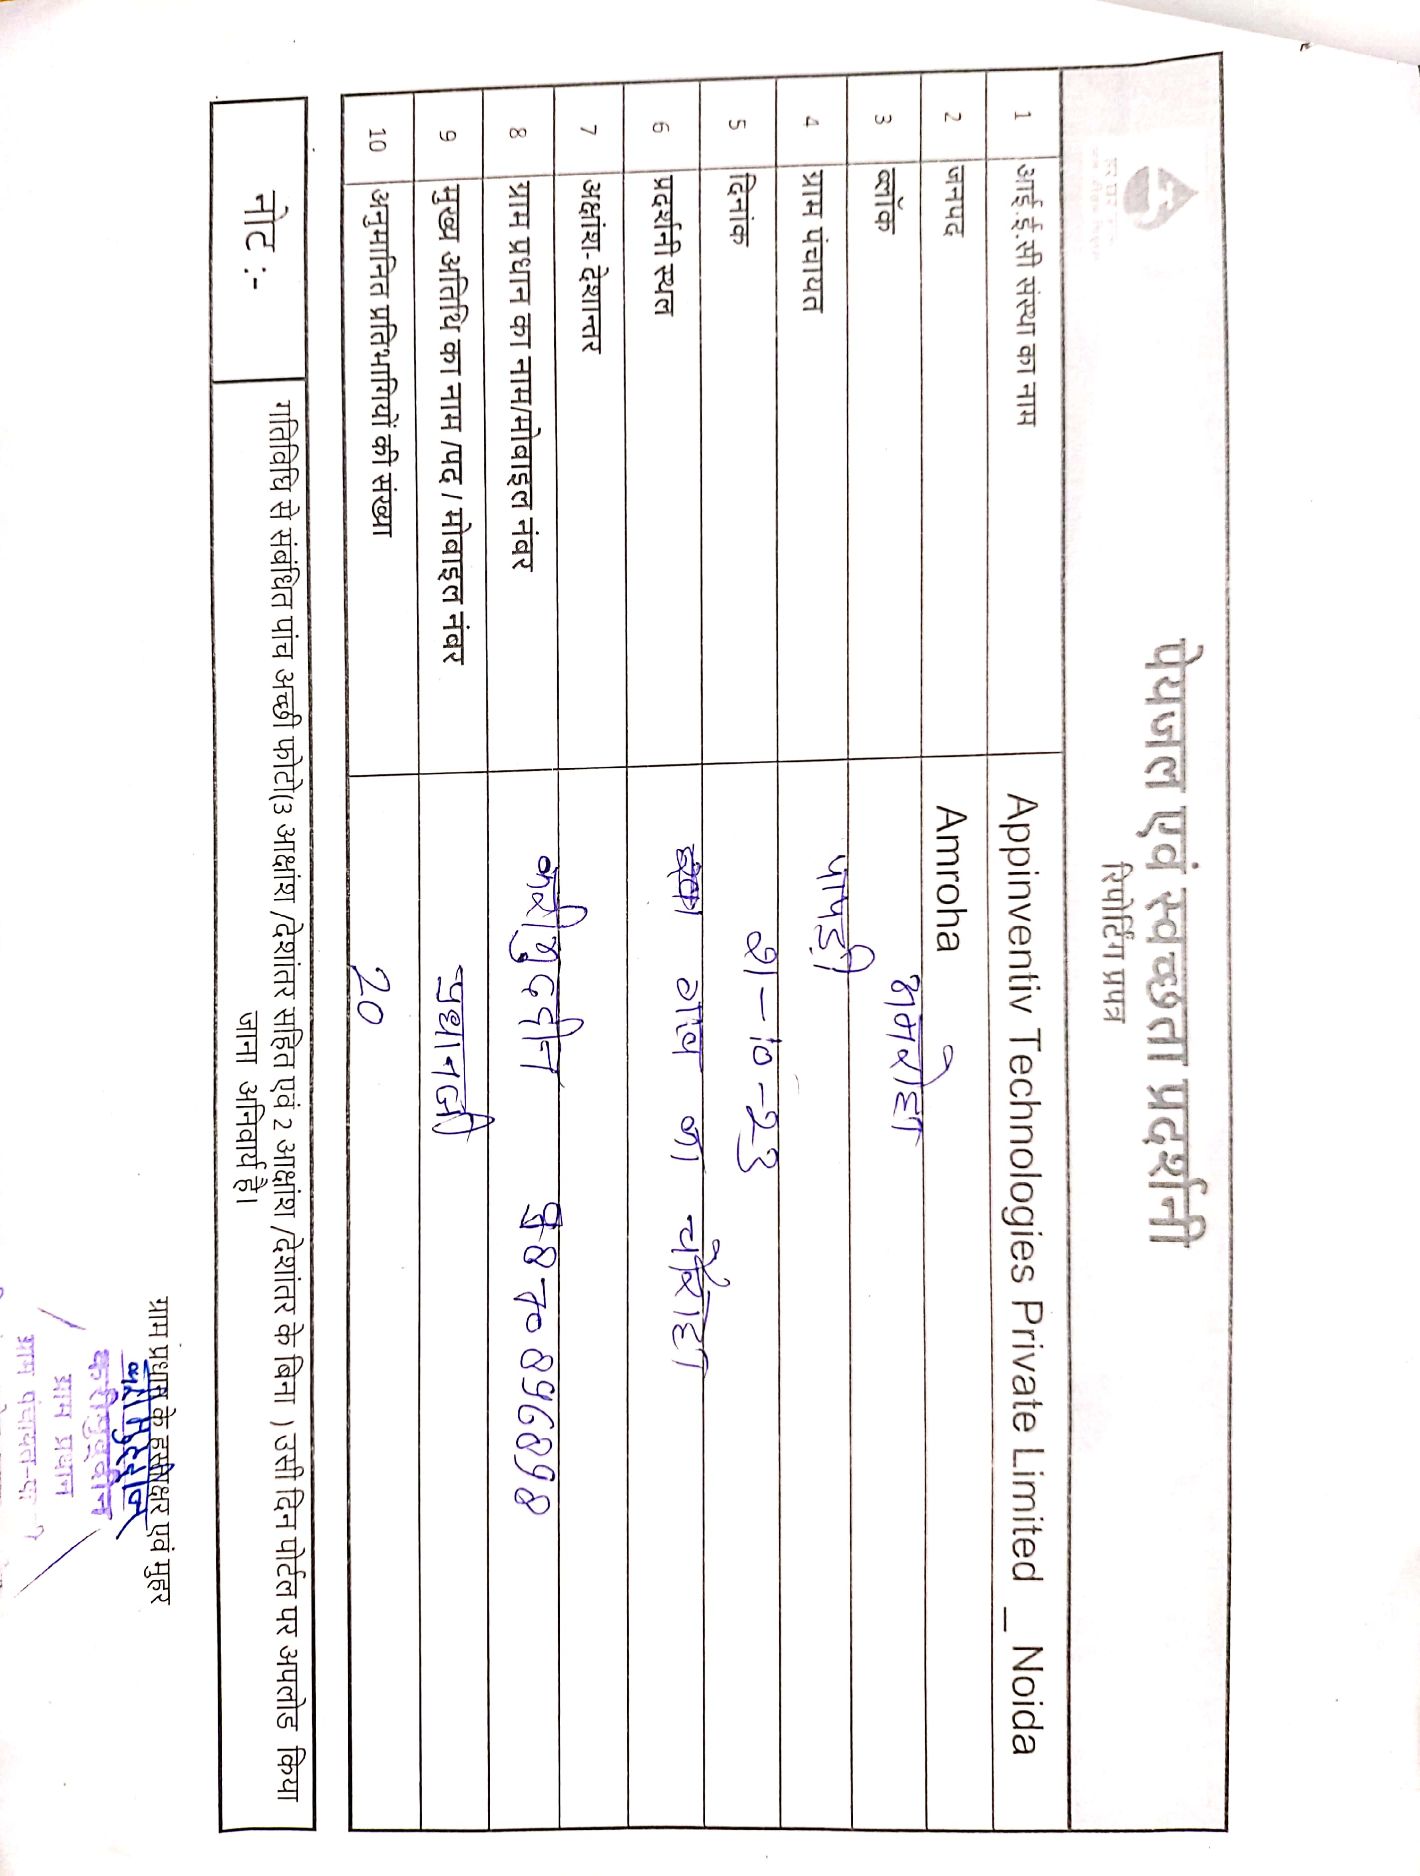 पेयजल एवं स्वच्छता प्रदर्शनी
रिपोर्टिंग प्रपत्र
1 आई.ई.सी संस्था का नाम Appinventiv Technologies Private Limited _ Noida
2 जनपद Amroha
3 ब्लॉक अमरोहा
4 ग्राम पंचायत पापड़ी
5 दिनांक 21-10-23
6 प्रदर्शनी स्थल गांव का चौराहा
7 अक्षांश- देशान्तर
8 ग्राम प्रधान का नाम/मोबाइल नंबर करीमुद्दीन 9870896898
9 मुख्य अतिथि का नाम /पद / मोबाइल नंबर प्रधानजी
10 अनुमानित प्रतिभागियों की संख्या 20
नोट :- गतिविधि से संबंधित पांच अच्छी फोटो(3 आक्षांश /देशांतर सहित एवं 2 आक्षांश /देशांतर के बिना ) उसी दिन पोर्टल पर अपलोड किया
जाना अनिवार्य है।
ग्राम प्रधान के हस्ताक्षर एवं मुहर
करीमुद्दीन
करीमुद्दीन
ग्राम प्रधान
ग्राम पंचायत